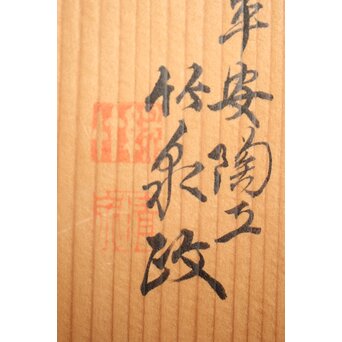 平安陶工
竹泉政